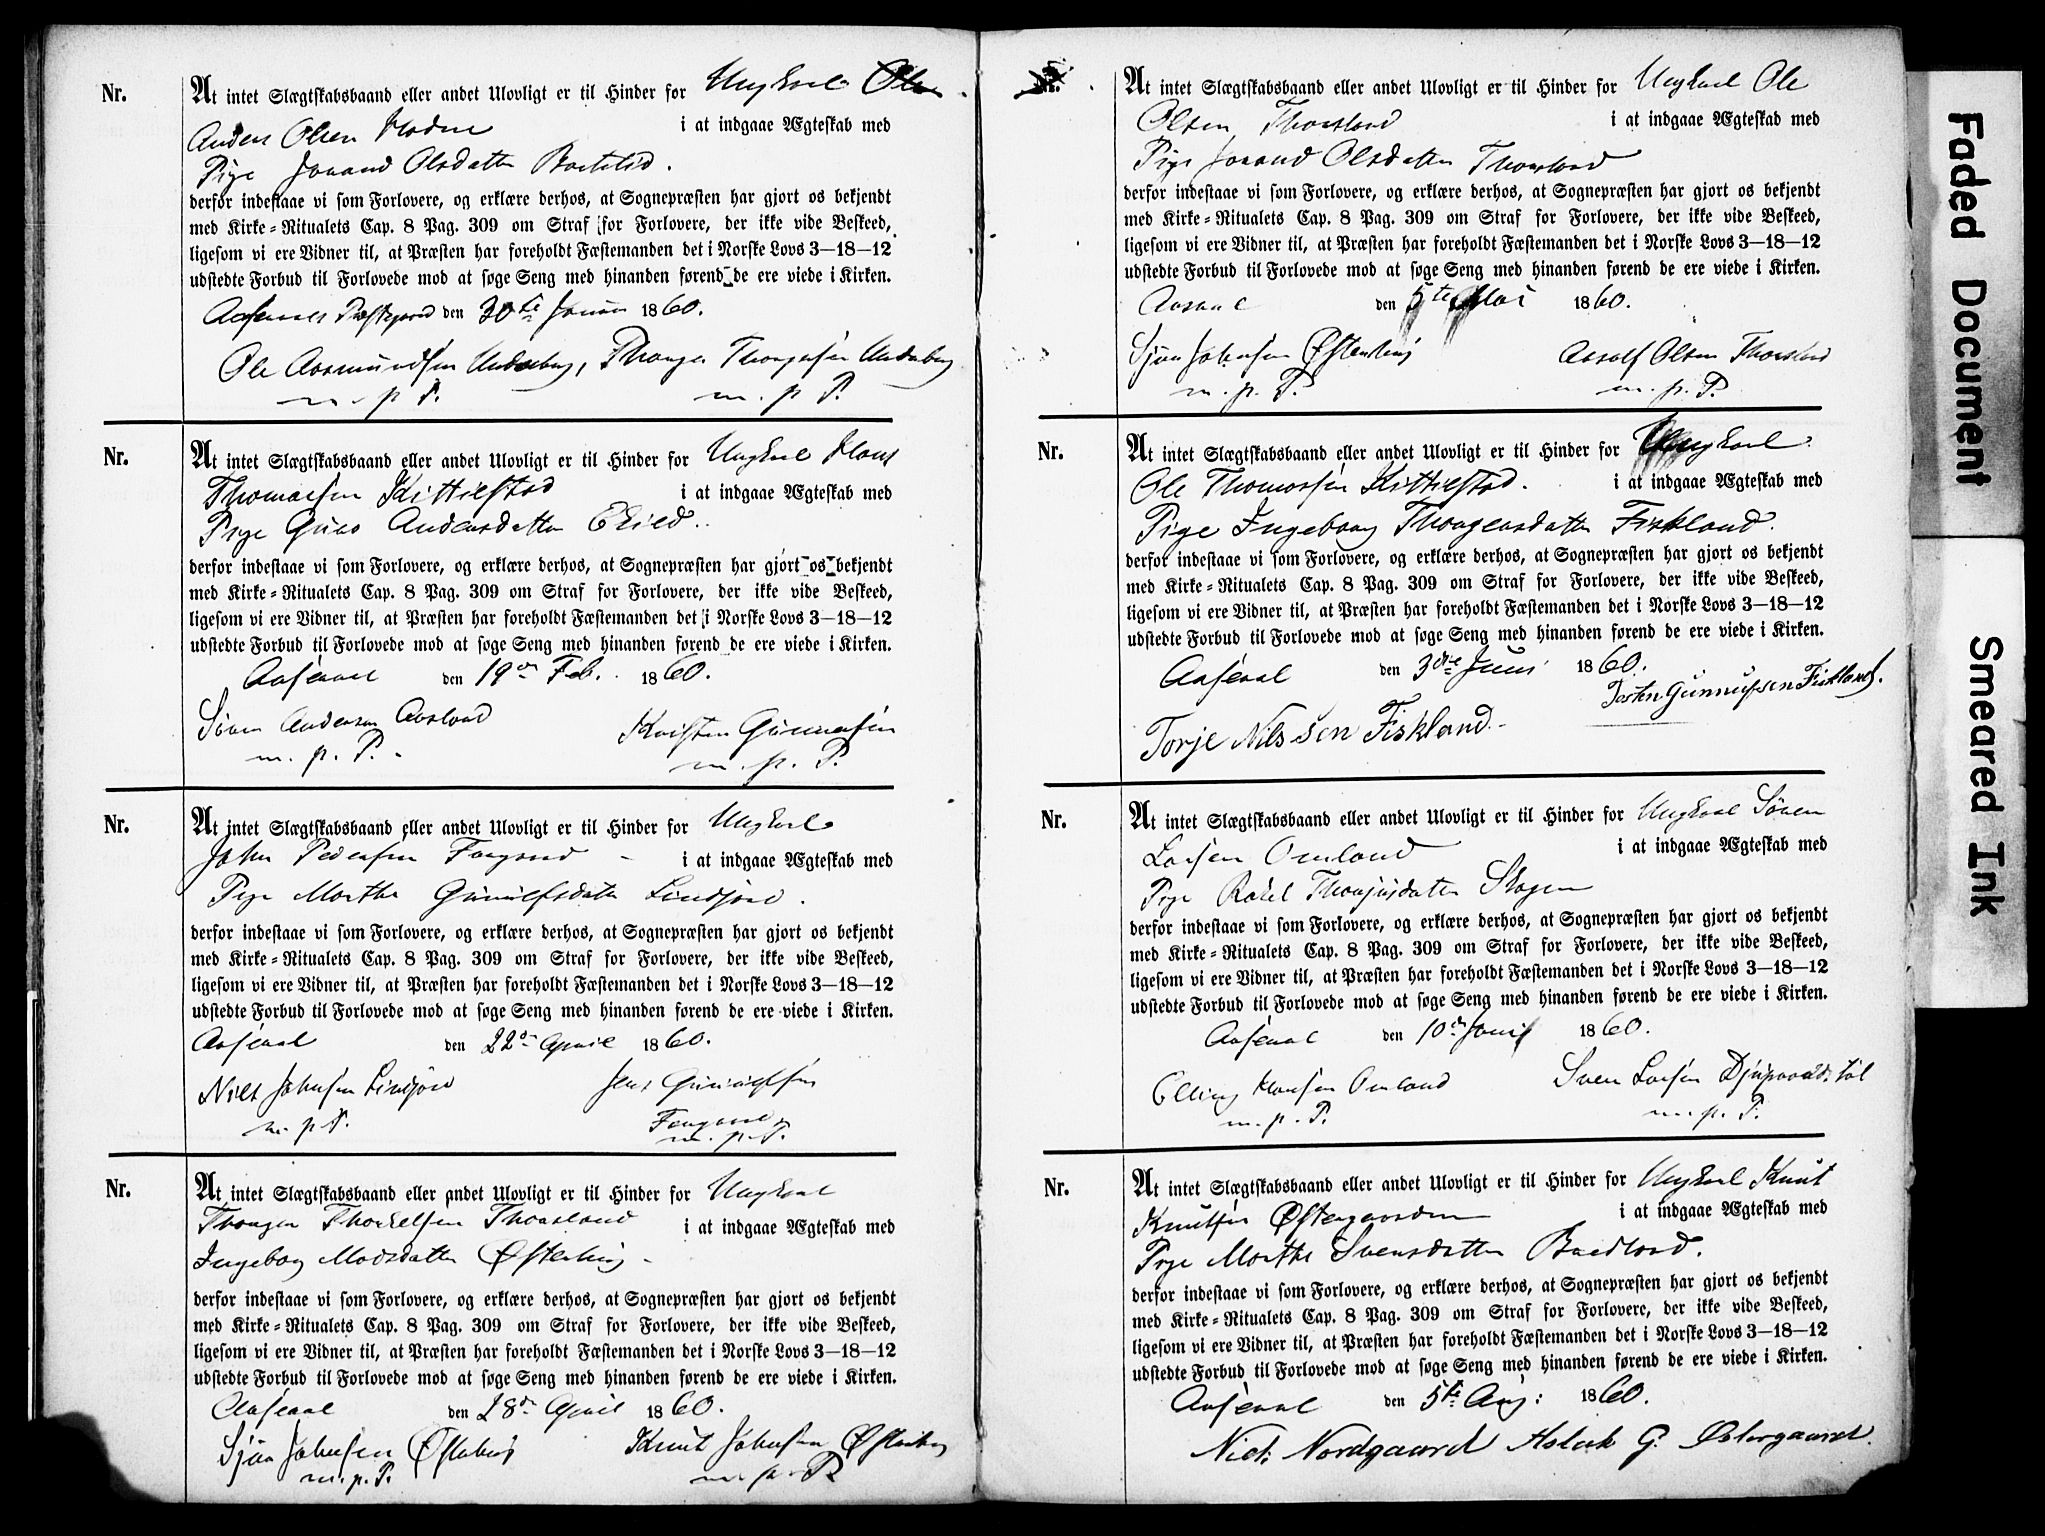 Nr.
At intet Slægtskabsbaand eller andet Ulovligt er til Hinder for Ungkarl Ole
Anders Olsen i at indgaae Ægteskab med
Pige Joraand Olsdatter
derfor indestaae vi som Forlovere, og erklære derhos, at Sognepræsten har gjort os bekjendt
med Kirke-Ritualets Cap. 8 Pag. 309 om Straf for Forlovere, der ikke vide Beskeed,
ligesom vi ere Vidner til, at Præsten har foreholdt Fæstemanden det i Norske Lovs 3—18—12
udstedte Forbud til Forlovede mod at søge Seng med hinanden førend de ere viede i Kirken.
den 30te Januar 1860.
Ole Aasmundsen
m. p. P. m. p. P.
Nr.
At intet Slægtskabsbaand eller andet Ulovligt er til Hinder for Ungkarl Hans
Thomassen Kittelstad i at indgaae Ægteskab med
Pige Guro Andersdatter
derfor indestaae vi som Forlovere, og erklære derhos, at Sognepræsten har gjort os bekjendt
med Kirke-Ritualets Cap. 8 Pag. 309 om Straf for Forlovere, der ikke vide Beskeed,
ligesom vi ere Vidner til, at Præsten har foreholdt Fæstemanden det i Norske Lovs 3—18—12
udstedte Forbud til Forlovede mod at søge Seng med hinanden førend de ere viede i Kirken.
Aaseral den 19de Feb. 1860.
Andersen Aasland Kristen Gunnarsen
m. p. P. m. p. P.
Nr.
At intet Slægtskabsbaand eller andet Ulovligt er til Hinder for Ungkarl
John Pedersen i at indgaae Ægteskab med
Pige Marthe
derfor indestaae vi som Forlovere, og erklære derhos, at Sognepræsten har gjort os bekjendt
med Kirke-Ritualets Cap. 8 Pag. 309 om Straf for Forlovere, der ikke vide Beskeed,
ligesom vi ere Vidner til, at Præsten har foreholdt Fæstemanden det i Norske Lovs 3—18—12
udstedte Forbud til Forlovede mod at søge Seng med hinanden førend de ere viede i Kirken.
Aaseral den 22de April 1860.
Nils Johnsen
m. p. P. m. p. P.
Nr.
At intet Slægtskabsbaand eller andet Ulovligt er til Hinder for Ungkarl
Thorkelsen Thorsland i at indgaae Ægteskab med
Ingeborg Madsdatter
derfor indestaae vi som Forlovere, og erklære derhos, at Sognepræsten har gjort os bekjendt
med Kirke-Ritualets Cap. 8 Pag. 309 om Straf for Forlovere, der ikke vide Beskeed,
ligesom vi ere Vidner til, at Præsten har foreholdt Fæstemanden det i Norske Lovs 3—18—12
udstedte Forbud til Forlovede mod at søge Seng med hinanden førend de ere viede i Kirken.
Aaseral den 28de April 1860.
Johnsen Knut Johnsen
m. p. P. m. p. P.
Nr.
At intet Slægtskabsbaand eller andet Ulovligt er til Hinder for Ungkarl Ole
Olsen Thorsland i at indgaae Ægteskab med
Pige Joraand Olsdatter Thorsland
derfor indestaae vi som Forlovere, og erklære derhos, at Sognepræsten har gjort os bekjendt
med Kirke-Ritualets Cap. 8 Pag. 309 om Straf for Forlovere, der ikke vide Beskeed,
ligesom vi ere Vidner til, at Præsten har foreholdt Fæstemanden det i Norske Lovs 3—18—12
udstedte Forbud til Forlovede mod at søge Seng med hinanden førend de ere viede i Kirken.
den 5te Mai 1860.
Johnsen Olsen Thorsland
m. p. P. m. p. P.
Nr.
At intet Slægtskabsbaand eller andet Ulovligt er til Hinder for Ungkarl
Ole Thomassen Kittelstad. i at indgaae Ægteskab med
Pige Ingeborg Fiskland.
derfor indestaae vi som Forlovere, og erklære derhos, at Sognepræsten har gjort os bekjendt
med Kirke-Ritualets Cap. 8 Pag. 309 om Straf for Forlovere, der ikke vide Beskeed,
ligesom vi ere Vidner til, at Præsten har foreholdt Fæstemanden det i Norske Lovs 3—18—12
udstedte Forbud til Forlovede mod at søge Seng med hinanden førend de ere viede i Kirken.
Aaseral den 3die Juni 1860.
Gunnufsen Fiskland.
Torje Nilssen Fiskland.
Nr.
At intet Slægtskabsbaand eller andet Ulovligt er til Hinder for Ungkarl Søren
Larsen Omland i at indgaae Ægteskab med
Pige Rakel Skogen
derfor indestaae vi som Forlovere, og erklære derhos, at Sognepræsten har gjort os bekjendt
med Kirke-Ritualets Cap. 8 Pag. 309 om Straf for Forlovere, der ikke vide Beskeed,
ligesom vi ere Vidner til, at Præsten har foreholdt Fæstemanden det i Norske Lovs 3—18—12
udstedte Forbud til Forlovede mod at søge Seng med hinanden førend de ere viede i Kirken.
Aaseral den 10de Juni 1860.
Elling Hansen Omland Sven Larsen
m. p. P. m. p. P.
Nr.
At intet Slægtskabsbaand eller andet Ulovligt er til Hinder for Ungkarl Knut
Knutsen Østergaarden i at indgaae Ægteskab med
Pige Marthe Svensdatter Bredland.
derfor indestaae vi som Forlovere, og erklære derhos, at Sognepræsten har gjort os bekjendt
med Kirke-Ritualets Cap. 8 Pag. 309 om Straf for Forlovere, der ikke vide Beskeed,
ligesom vi ere Vidner til, at Præsten har foreholdt Fæstemanden det i Norske Lovs 3—18—12
udstedte Forbud til Forlovede mod at søge Seng med hinanden førend de ere viede i Kirken.
Aaseral den 5te Aug: 1860.
Nordgaard Aslak G. Østergaard.
Faded Document
Smeared Ink